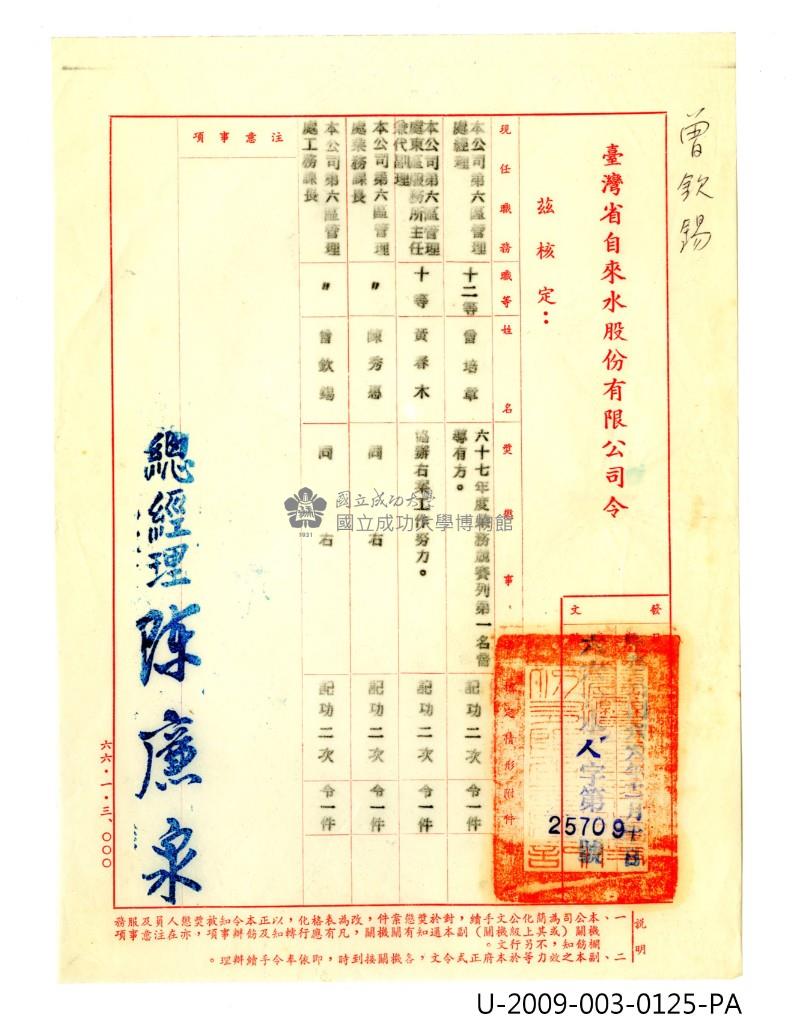 曾欽錫
臺灣省自來水股份有限公司令
茲核定：
發文
人字第25709號
現任職務
職等
姓名
獎懲事
核定情形
附件
本公司第六區管理處經理
十二等
曾培章
六十七年度業務競賽列第一名督導有方。
記功二次
令一件
本公司第六區管理處東區服務所主任兼代副理
十等
黃春木
協辦右案工作努力。
記功二次
令一件
本公司第六區管理處業務課長
〃
陳秀惠
同右
記功二次
令一件
本公司第六區管理處工務課長
〃
曾欽錫
同右
記功二次
令一件
注意事項
總經理 陳廉泉
六六．1．3、○○○
說明
一、本公司為簡化公文手續，對於獎懲案件，改為表格化，以正本令知被獎懲人員及服務
機關（或其上級機關）副本通知有關機關，凡有應行轉知及飭辦事項，亦在注意事項
欄飭知，不另行文。
二、副本之效力等於本府正式令文，各機關接到時，即依奉令手續辦理。
國立成功大學
國立成功大學博物館
1931
U-2009-003-0125-PA